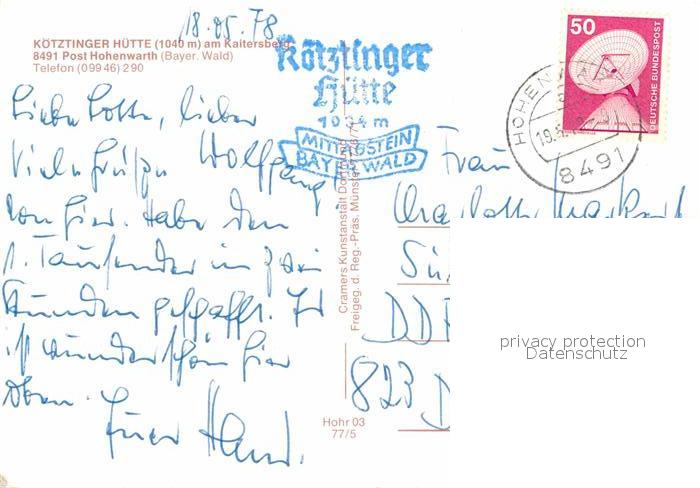 18.05.78
KÖTZTINGER HÜTTE (1040 m) am Kaitersberg
8491 Post Hohenwarth (Bayer. Wald)
Telefon (0 99 46) 2 90
Kötztinger
Hütte
1034 m
MITTAGSTEIN
BAYER. WALD
50
DEUTSCHE BUNDESPOST
HOHEN
19.5.
8491
Liebe Lotte, lieber
Wolfgang
Viele Grüße
von hier. Habe den
1. Tausender in zwei
Stunden geschafft. Es
ist wunderschön hier
oben.
Euer
Cramers Kunstanstalt Dortmund
Freigeg. d. Reg.-Präs. Münster
Hohr 03
77/5
Frau
DD
823 D
privacy protection
Datenschutz